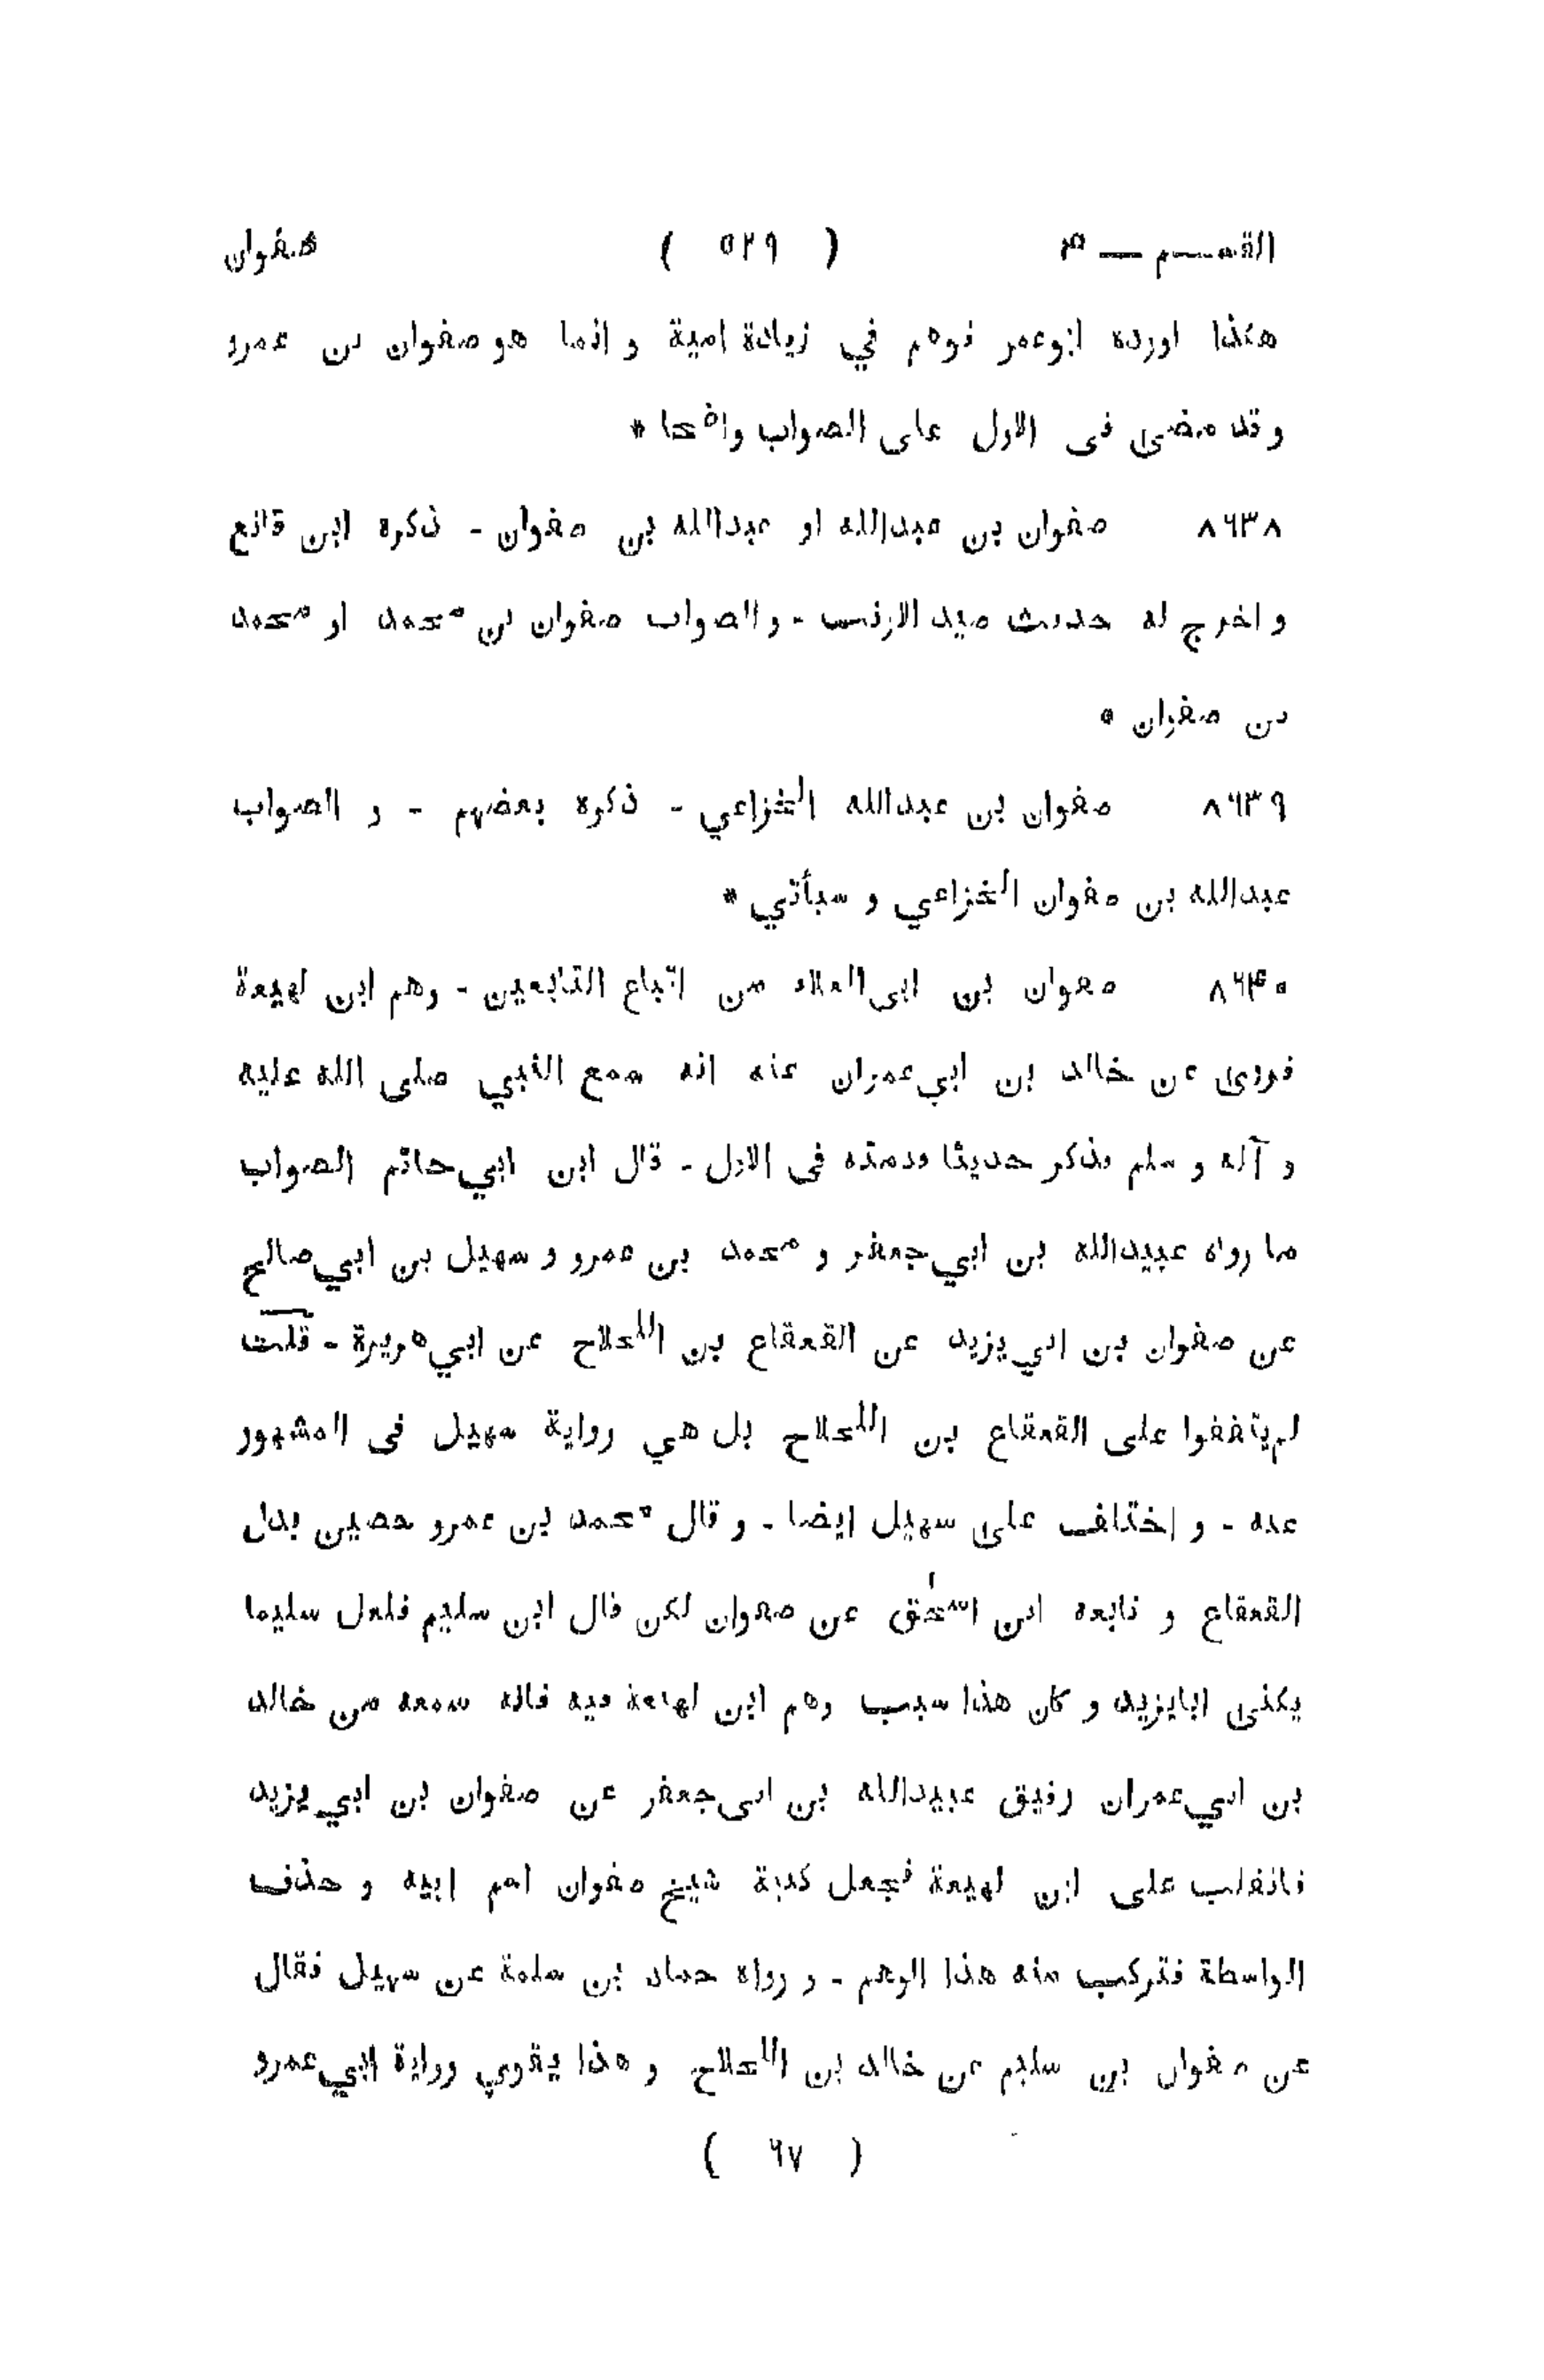 القسم — ۴ ( ٥٢٩ ) صفوان
هكذا اورده ابوعمر فوهم في زيادة امية و انما هو صفوان بن عمرو
و قد مضى فى الاول على الصواب واضحا *
٨٦٣٨ صفوان بن عبدالله او عبدالله بن صفوان - ذكره ابن قانع
و اخرج له حديث صيد الارنب - والصواب صفوان بن محمد او محمد
بن صفوان *
٨٦٣٩ صفوان بن عبدالله الخزاعي - ذكره بعضهم - و الصواب
عبدالله بن صفوان الخزاعي و سيأتي *
٨٦۴٠ صفوان بن ابى العلاء من اتباع التابعين - وهم ابن لهيعة
فروى عن خالد بن ابي عمران عنه انه سمع النبي صلى الله عليه
و آله و سلم فذكر حديثا قدمته فى الاول - قال ابن ابي حاتم الصواب
ما رواه عبيدالله بن ابي جعفر و محمد بن عمرو و سهيل بن ابي صالح
عن صفوان بن ابي يزيد عن القعقاع بن اللحلاح عن ابي هريرة - قلت
لم يتفقوا على القعقاع بن اللحلاح بل هي رواية سهيل فى المشهور
عنه - و اختلف على سهيل ايضا - و قال محمد بن عمرو حصين بدل
القعقاع و تابعه ابن اسحٰق عن صفوان لكن قال ابن سليم فلعل سليما
يكنى ابايزيد و كان هذا سبب وهم ابن لهيعة فيه فانه سمعه من خالد
بن ابي عمران رفيق عبيدالله بن ابى جعفر عن صفوان بن ابي يزيد
فانقلب على ابن لهيعة فجعل كنية شيخ صفوان اسم ابيه و حذف
الواسطة فتركب منه هذا الوهم - و رواه حماد بن سلمة عن سهيل فقال
عن صفوان بن سليم عن خالد بن اللحلاح و هذا يقوي رواية ابي عمرو
( ٦٧ )